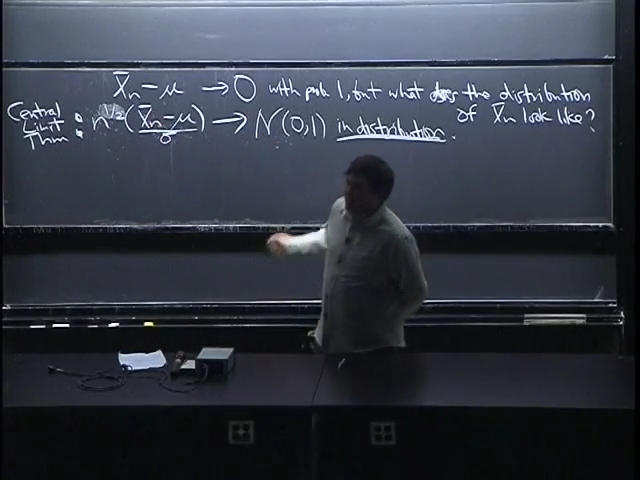 X̄n − μ → 0 with prob 1, but what does the distribution of X̄n look like?
Central Limit Thm : n^{1/2} (X̄n − μ)/σ → N(0,1) in distribution.